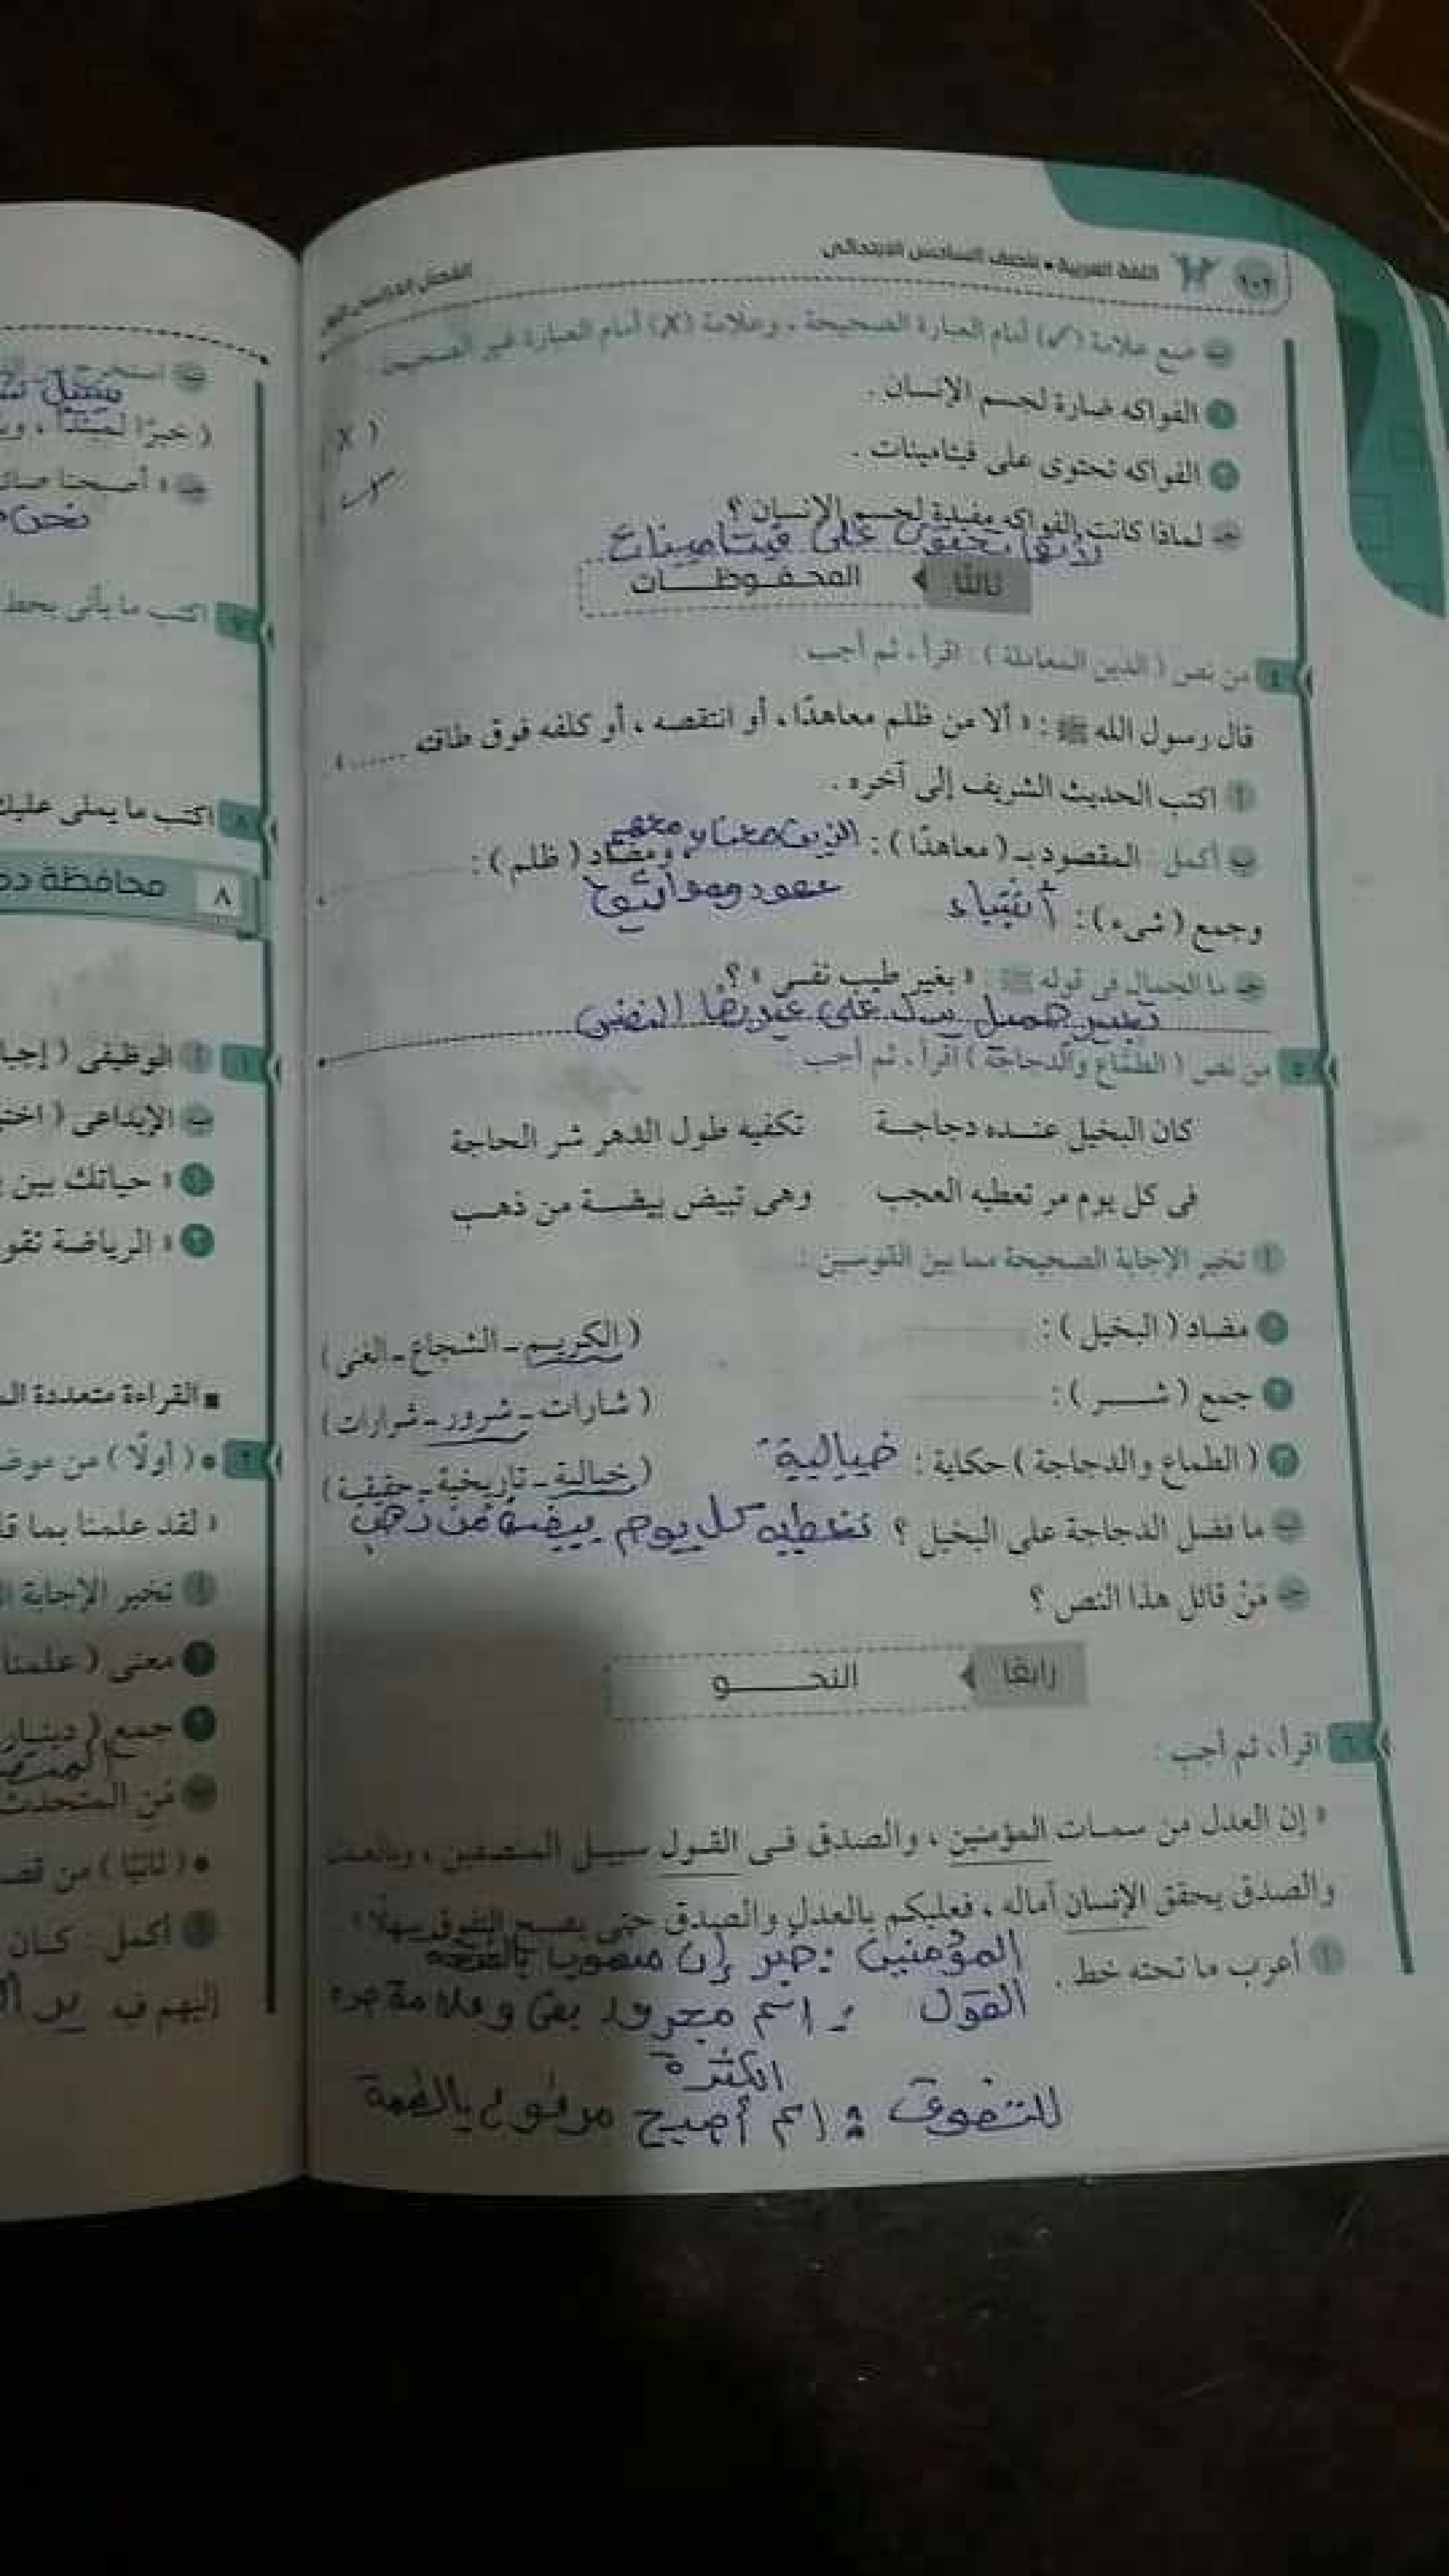 ١٠٢ اللغة العربية • للصف السادس الابتدائى
الفصل الدراسى
ب ضع علامة (✓) أمام العبارة الصحيحة ، وعلامة (X) أمام العبارة غير الصحيحة :
١ الفواكه ضارة لجسم الإنسان . ( X )
٢ الفواكه تحتوى على فيتامينات . ✓
جـ لماذا كانت الفواكه مفيدة لجسم الإنسان ؟
لأنها تحتوى على فيتامينات
ثالثًا المحفوظات
٤ من نص ( الدين المعاملة ) : اقرأ ، ثم أجب :
قال رسول الله ﷺ : « ألا من ظلم معاهدًا ، أو انتقصه ، أو كلفه فوق طاقته ...... » .
أ اكتب الحديث الشريف إلى آخره .
ب أكمل : المقصود بـ ( معاهدًا ) : الذين بيننا وبينهم ، ومضاد ( ظلم ) :
عهود ومواثيق
وجمع ( شىء ) : أشياء
جـ ما الجمال فى قوله ﷺ : « بغير طيب نفس » ؟
تعبير جميل يدل على عدم رضا النفس
٥ من نص ( الطماع والدجاجة ) اقرأ ، ثم أجب :
كان البخيل عنده دجاجة تكفيه طول الدهر شر الحاجة
فى كل يوم مر تعطيه العجب وهى تبيض بيضة من ذهب
أ تخير الإجابة الصحيحة مما بين القوسين :
١ مضاد ( البخيل ) : ( الكريم - الشجاع - الغنى )
٢ جمع ( شر ) : ( شارات - شرور - شرارات )
٣ ( الطماع والدجاجة ) حكاية : خيالية ( خيالية - تاريخية - حقيقية )
ب ما فضل الدجاجة على البخيل ؟ تعطيه كل يوم بيضة من ذهب
جـ مَنْ قائل هذا النص ؟
رابعًا النحو
٦ اقرأ ، ثم أجب :
« إن العدل من سمات المؤمنين ، والصدق فى القول سبيل المنصفين ، وبالعدل
والصدق يحقق الإنسان آماله ، فعليكم بالعدل والصدق حتى يصبح التفوق سهلًا »
أ أعرب ما تحته خط .
المؤمنين : خبر إن منصوب بالفتحة
القول : اسم مجرور بفى وعلامة جره
الكسرة
للتفوق : اسم أصبح مرفوع بالضمة
ب استخرج
( خبرًا لمبتدأ ،
جـ « أصبحنا
نحن
٧ اكتب ما يأتى بخط
٨ اكتب ما يملى عليك
٨ محافظة
١ أ الوظيفى (
ب الإبداعى (
١ « حياتك بين
٢ « الرياضة
■ القراءة متعددة
٢ • ( أولًا ) من
« لقد علمنا بما
أ تخير الإجابة
١ معنى ( علمنا
٢ جمع ( دينار
ب مَن المتحدث
• ( ثانيًا ) من
أ أكمل : كان
إليهم